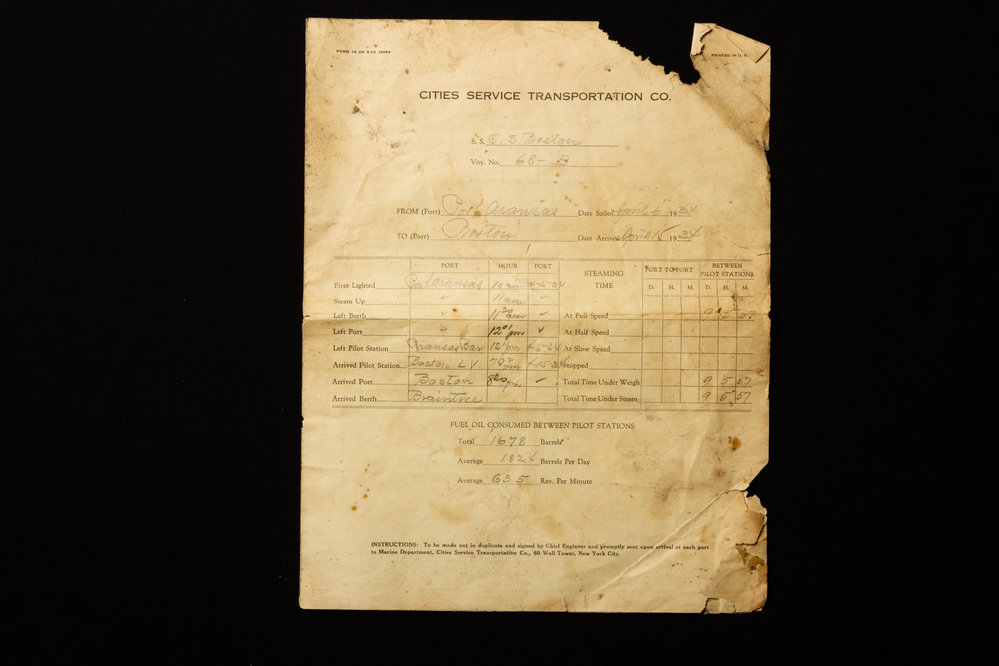 FORM 10 2M 5-33 J9954
PRINTED IN U. S.
CITIES SERVICE TRANSPORTATION CO.
S. S. C. S Boston
Voy. No. 68- B
FROM (Port) Port Aransas Date Sailed April 6 1934
TO (Port) Boston Date Arrived April 15 1934
PORT HOUR PORT STEAMING TIME PORT TO PORT BETWEEN PILOT STATIONS
D. H. M. D. H. M.
Fires Lighted Port Aransas 10 am 4-6-34
Steam Up " 11 am "
Left Berth " 11 30 am " At Full Speed 9 5 57
Left Port " pm " At Half Speed
Left Pilot Station Aransas Bar pm At Slow Speed
Arrived Pilot Station Boston L.V. pm 4-15-34 Stopped
Arrived Port Boston pm " Total Time Under Weigh 9 5 57
Arrived Berth Braintree Total Time Under Steam 9 5 57
FUEL OIL CONSUMED BETWEEN PILOT STATIONS
Total 1678 Barrels
Average 182.4 Barrels Per Day
Average 63.5 Rev. Per Minute
INSTRUCTIONS: To be made out in duplicate and signed by Chief Engineer and promptly sent upon arrival at each port
to Marine Department, Cities Service Transportation Co., 60 Wall Tower, New York City.